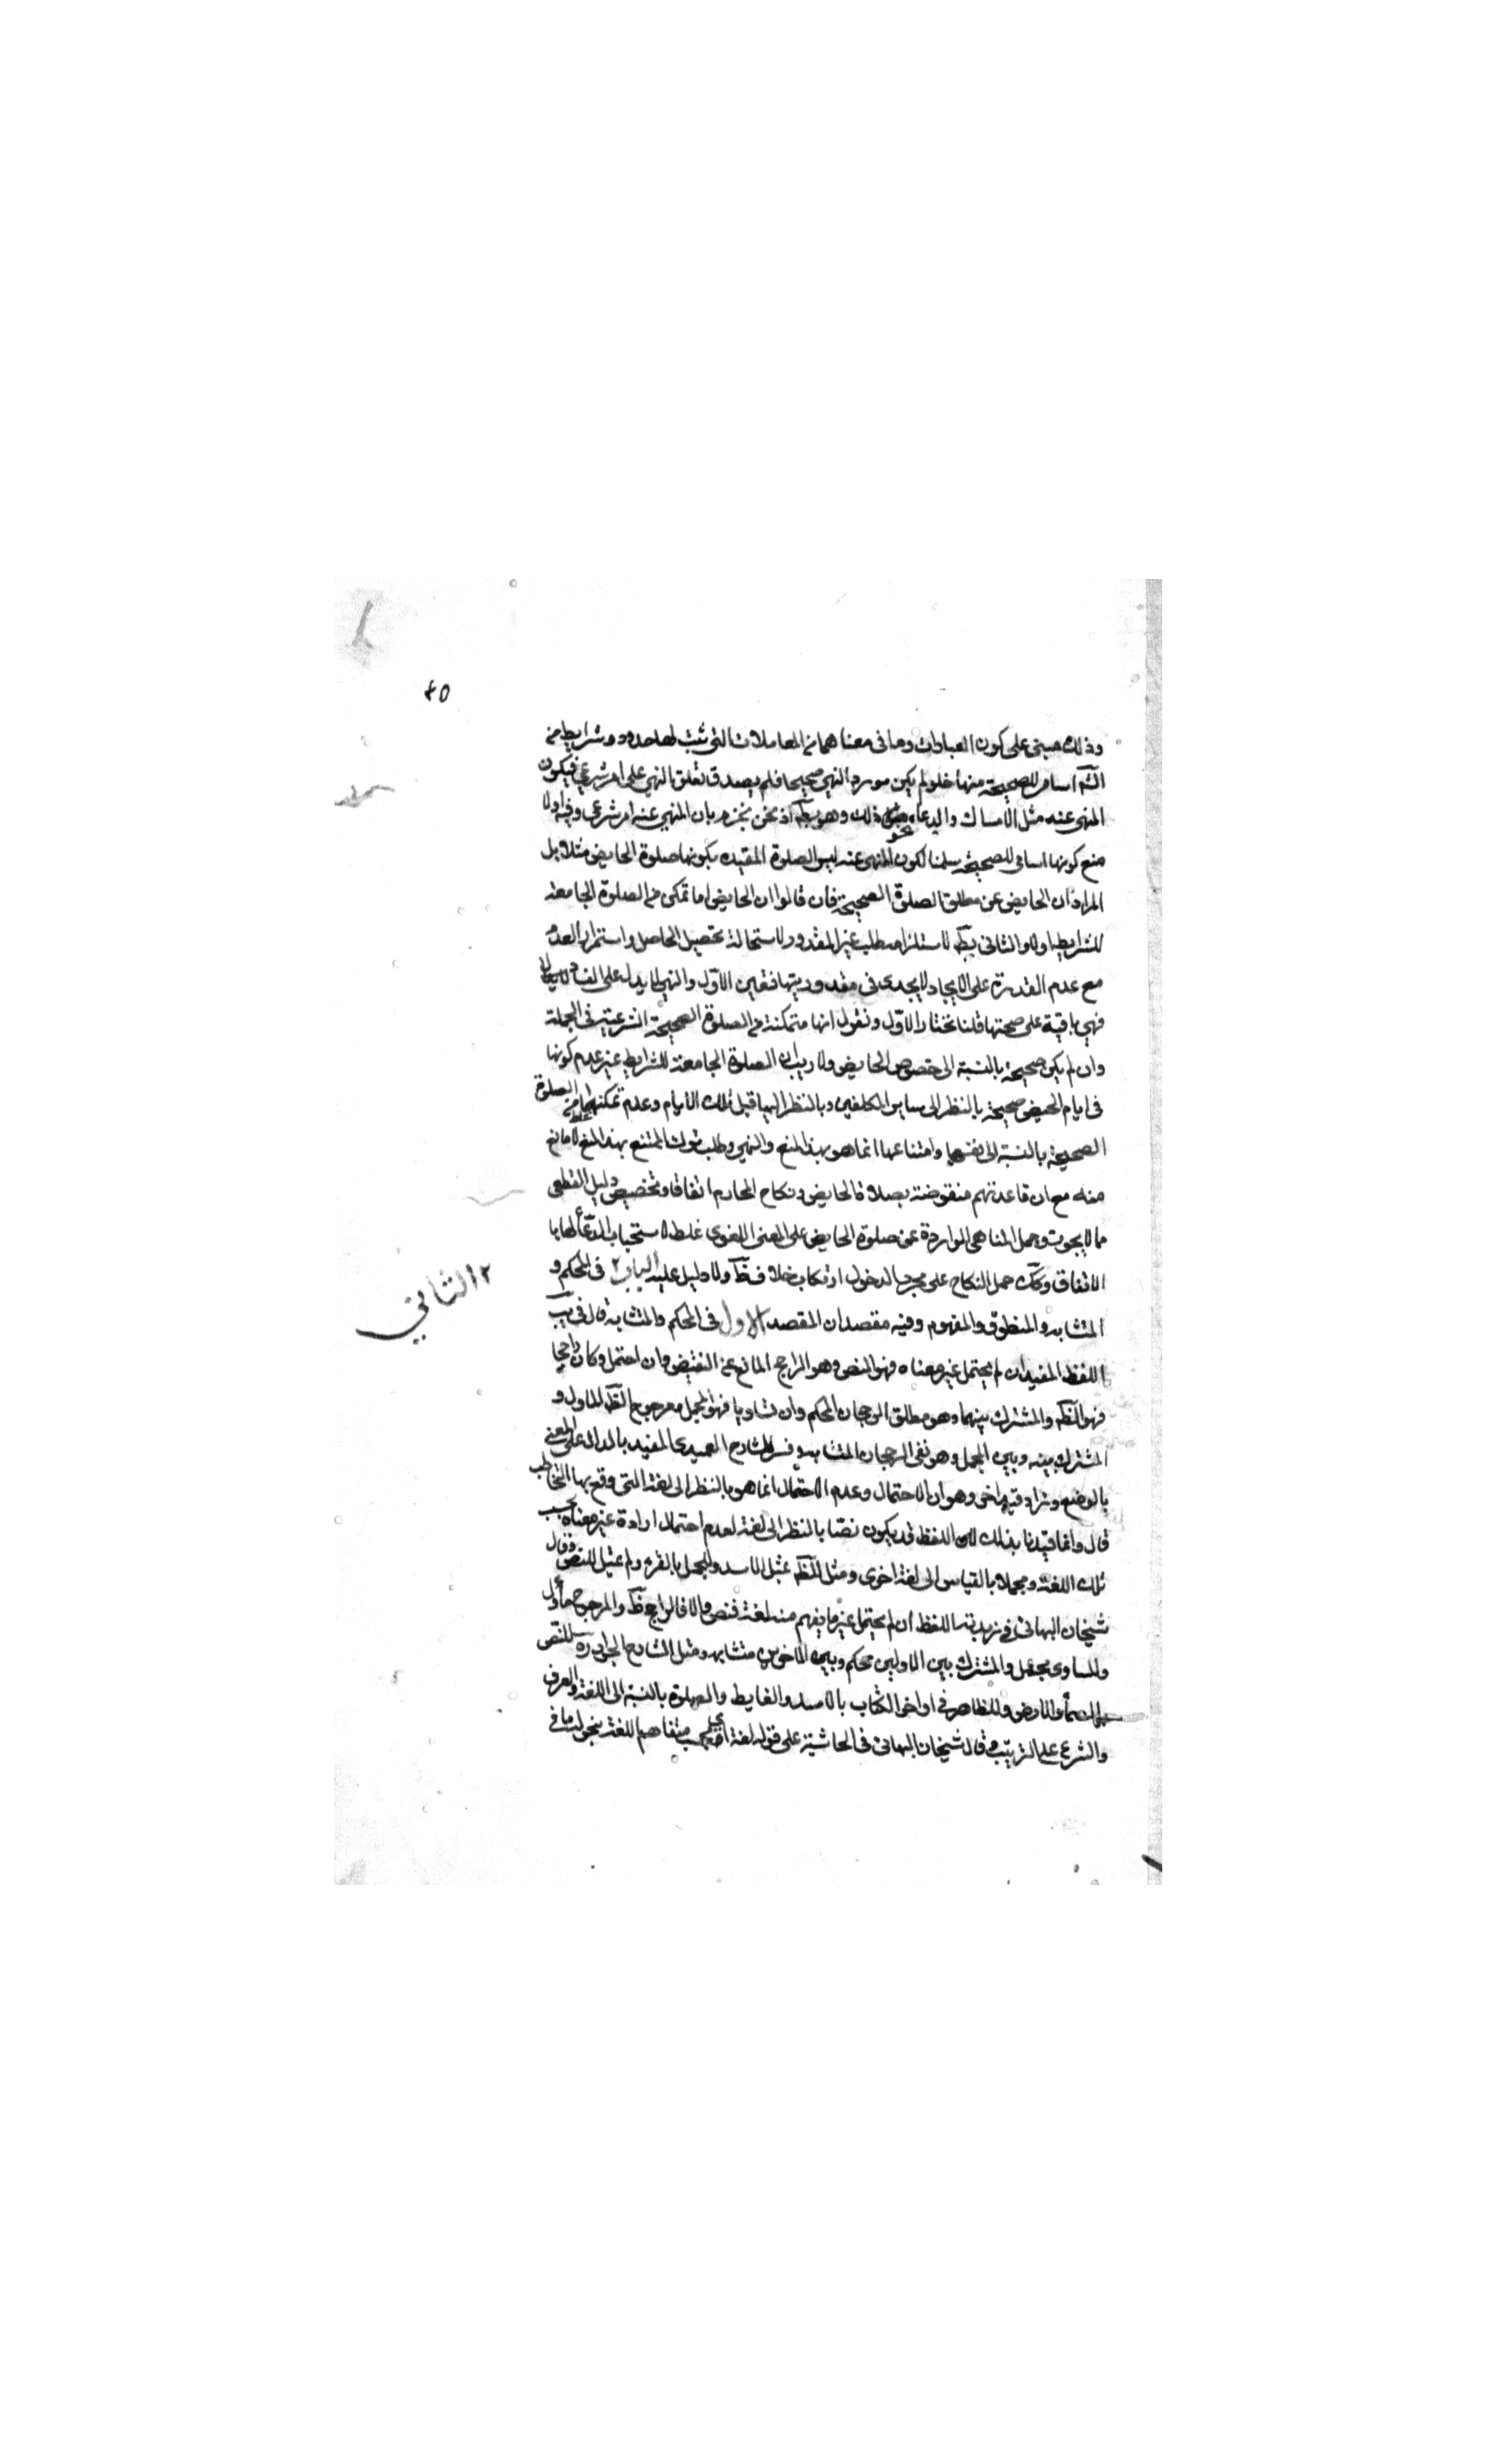 ٤٥
وذلك مبنى على كون العبادات وما فى معناها من المعاملات التى ثبت لها حدود وشرايط من
الشه اسام للصحيحة منها فلو لم يكن مورد النهى صحيحا فلم يصدق تعلق النهى على امر شرعى فيكون
المنهى عنه مثل الامساك والدعاء ونحو ذلك وهو بط اذ نحن نجزم بان المنهى عنه امر شرعى وفيه اولا
منع كونها اسامى للصحيحة سلمنا لكون المنهى عنه ليس الصلوة المقيده بكونها صلوة الحايض مثلا بل
المراد ان الحايض عن مطلق الصلوة الصحيحة فان قالوا ان الحايض اما تمكن من الصلوة الجامعة
للشرايط اولا والثانى بط لاستلزامه طلب غير المقدور ولاستحالة تحصيل الحاصل واستمرار العدم
مع عدم القدرة على الايجاد لا يجدى فى مقدوريتها فتعين الاول والنهى لا يدل على الفساد
فهى باقية على صحتها قلنا نختار الاول ونقول انها متمكنة من الصلوة الصحيحة الشرعية فى الجملة
وان لم يكن صحيحة بالنسبة الى خصوص الحايض ولا ريب ان الصلوة الجامعة للشرايط غير عدم كونها
فى ايام الحيض صحيحة بالنظر الى ساير المكلفين وبالنظر اليها قبل تلك الايام وعدم تمكنها من الصلوة
الصحيحة بالنسبة الى نفسها وامتناعها انما هو بهذا المنع والنهى وطلب ترك الممتنع بهذا المنع لا مانع
منه مع ان قاعدتهم منقوضة بصلاة الحايض ونكاح المحارم اتفاقا وتخصيص دليل القطعى
مما لا يجوز وحمل المناهى الواردة عن صلوة الحايض على المعنى اللغوى غلط لاستحباب الدعاء لها با
لاتفاق وكك حمل النكاح على مجرد الدخول ارتكاب خلاف ظ ولا دليل عليه الباب ٢ فى المحكم و
٢ الثانى
المتشابه والمنطوق والمفهوم وفيه مقصدان المقصد الاول فى المحكم والمتشابه قال فى يب
اللفظ المفيد ان لم يحتمل غير معناه فهو النص وهو الراجح المانع عن النقيض وان احتمل وكان راجحا
فهو الظ والمشترك بينهما وهو مطلق الرجحان المحكم وان تساويا فهو المجمل ومرجوح الظ الماول و
المشترك بينه وبين المجمل وهو نفى الرجحان المتشابه وفسر الشارح العميدى المفيد بالدال على المعنى
بالوضع وزاد قيدا اخر وهو ان الاحتمال وعدم الاحتمال انما هو بالنظر الى لغة التى وقع بها التخاطب
قال وانما قيدنا بذلك لان اللفظ قد يكون نصا بالنظر الى لغة لعدم احتمال ارادة غير معناه بحسب
تلك اللغة ومجملا بالقياس الى لغة اخرى ومثل للظ بمثل الاسد وللمجمل بالقرء ولم يمثل للنص وقال
شيخنا البهائى فى زبدته اللفظ ان لم يحتمل غير ما يفهم منه لغة فنص والا فالراجح ظ والمرجوح مأول
والمساوى مجمل والمشترك بين الاولين محكم وبين الاخرين متشابه ومثل الشارح الجواد ره للنص
بالسماء والارض وللظاهر فى اواخر الكتاب بالاسد والغايط والصلوة بالنسبة الى اللغة والعرف
والشرع على الترتيب وقال شيخنا البهائى فى الحاشية على قوله لغة اى بحسب متفاهم اللغة بنحو ما فى